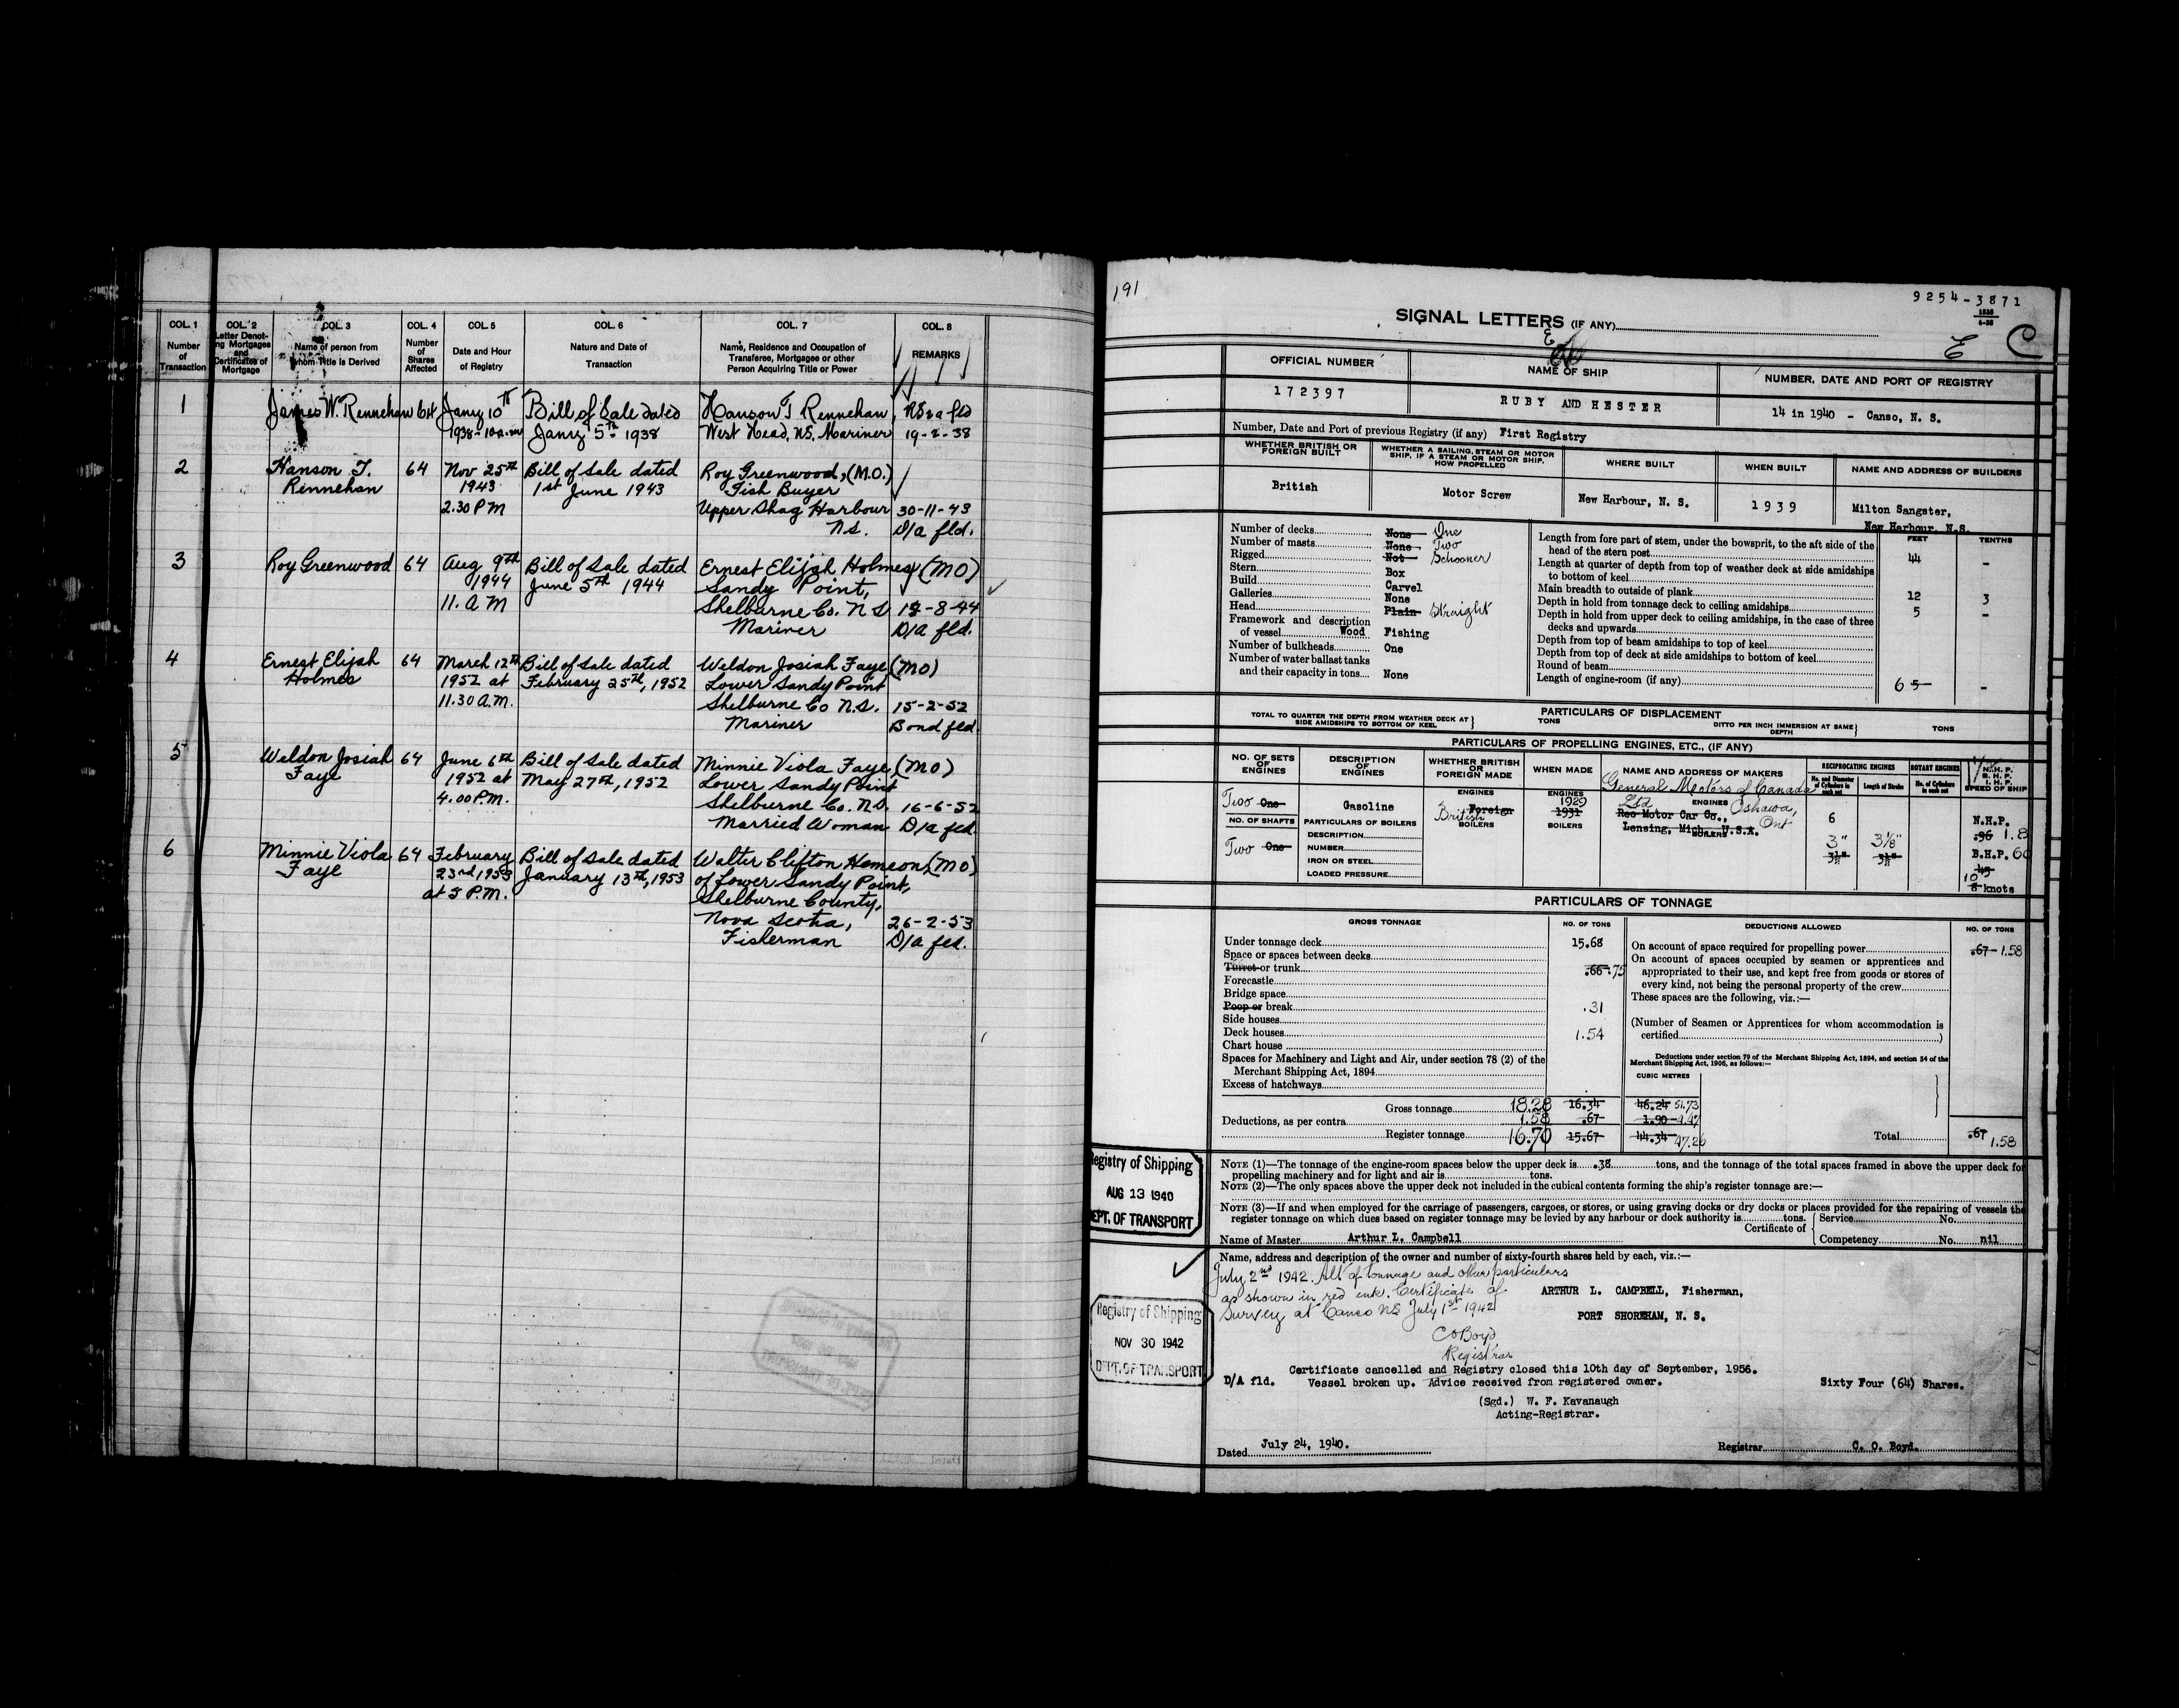 COL. 1 COL. 2 COL. 3 COL. 4 COL. 5 COL. 6 COL. 7 COL. 8
Number of Transaction
Letter Denoting Mortgages and Certificates of Mortgage
Name of person from whom Title is Derived
Number of Shares Affected
Date and Hour of Registry
Nature and Date of Transaction
Name, Residence and Occupation of Transferee, Mortgagee or other Person Acquiring Title or Power
REMARKS
1 James W. Rennehan 64 Jany 10th Bill of Sale dated Hanson T Rennehan,
1938 - 10 a.m Jany 5th 1938 West Head, N.S. Mariner 19-2-38
2 Hanson T. 64 Nov 25th Bill of Sale dated Roy Greenwood, (M.O.)
Rennehan 1943 1st June 1943 Fish Buyer
2.30 PM Upper Shag Harbour 30-11-43
N.S. D/a fld.
3 Roy Greenwood 64 Aug 9th Bill of Sale dated Ernest Elijah Holmes (MO)
1944 June 5th 1944 Sandy Point,
11. A M Shelburne Co. N S -8-44
Mariner D/a fld.
4 Ernest Elijah 64 March 12th Bill of Sale dated Weldon Josiah Faye (MO)
Holmes 1952 at February 25th, 1952 Lower Sandy Point
11.30 A.M. Shelburne Co N.S. 15-2-52
Mariner Bond fld.
5 Weldon Josiah 64 June 6th Bill of Sale dated Minnie Viola Faye (MO)
Faye 1952 at May 27th, 1952 Lower Sandy Point
4.00 P.M. Shelburne Co. N.S. 16-6-52
Married Woman D/a fld.
6 Minnie Viola 64 February Bill of Sale dated Walter Clifton Hemeon, (MO)
Faye 23rd, 1953 January 13th, 1953 of Lower Sandy Point,
at 5 P.M. Shelburne County,
Nova Scotia, 26-2-53
Fisherman D/a fld.
191
9254-3871
SIGNAL LETTERS (IF ANY)
E C
OFFICIAL NUMBER NAME OF SHIP NUMBER, DATE AND PORT OF REGISTRY
172397 RUBY AND HESTER 14 in 1940 - Canso, N. S.
Number, Date and Port of previous Registry (if any) First Registry
WHETHER BRITISH OR FOREIGN BUILT
WHETHER A SAILING, STEAM OR MOTOR SHIP. IF A STEAM OR MOTOR SHIP, HOW PROPELLED
WHERE BUILT WHEN BUILT NAME AND ADDRESS OF BUILDERS
British Motor Screw New Harbour, N. S. 1939 Milton Sangster,
New Harbour, N.S.
Number of decks None One
Number of masts None Two
Rigged Not Schooner
Stern Box
Build Carvel
Galleries None
Head Plain Straight
Framework and description
of vessel Wood Fishing
Number of bulkheads One
Number of water ballast tanks
and their capacity in tons None
FEET TENTHS
Length from fore part of stem, under the bowsprit, to the aft side of the
head of the stern post 44 -
Length at quarter of depth from top of weather deck at side amidships
to bottom of keel
Main breadth to outside of plank 12 3
Depth in hold from tonnage deck to ceiling amidships 5 -
Depth in hold from upper deck to ceiling amidships, in the case of three
decks and upwards
Depth from top of beam amidships to top of keel
Depth from top of deck at side amidships to bottom of keel
Round of beam
Length of engine-room (if any) 6 5 -
PARTICULARS OF DISPLACEMENT
TOTAL TO QUARTER THE DEPTH FROM WEATHER DECK AT SIDE AMIDSHIPS TO BOTTOM OF KEEL TONS
DITTO PER INCH IMMERSION AT SAME DEPTH TONS
PARTICULARS OF PROPELLING ENGINES, ETC., (IF ANY)
NO. OF SETS OF ENGINES
DESCRIPTION OF ENGINES
WHETHER BRITISH OR FOREIGN MADE
WHEN MADE
NAME AND ADDRESS OF MAKERS
RECIPROCATING ENGINES
No. and Diameter of Cylinders in each set
Length of Stroke
ROTARY ENGINES
No. of Cylinders in each set
N.H.P.
B.H.P.
I.H.P.
SPEED OF SHIP
General Motors of Canada
Two One Gasoline ENGINES Foreign British ENGINES 1929 1931 Ltd ENGINES Oshawa, Ont
Reo Motor Car Co., 6
Lansing, Mich., U.S.A.
NO. OF SHAFTS PARTICULARS OF BOILERS BOILERS BOILERS BOILERS
Two One
DESCRIPTION
NUMBER
IRON OR STEEL
LOADED PRESSURE
3" 3⅛"
N.H.P.
.96 1.8
B.H.P. 60
45
10
8 knots
PARTICULARS OF TONNAGE
GROSS TONNAGE NO. OF TONS DEDUCTIONS ALLOWED NO. OF TONS
Under tonnage deck 15.68
Space or spaces between decks
Turret or trunk .66 .75
Forecastle
Bridge space
Poop or break .31
Side houses
Deck houses 1.54
Chart house
Spaces for Machinery and Light and Air, under section 78 (2) of the
Merchant Shipping Act, 1894
Excess of hatchways
On account of space required for propelling power .67 1.58
On account of spaces occupied by seamen or apprentices and
appropriated to their use, and kept free from goods or stores of
every kind, not being the personal property of the crew
These spaces are the following, viz.:—
(Number of Seamen or Apprentices for whom accommodation is
certified )
Deductions under section 79 of the Merchant Shipping Act, 1894, and section 54 of the
Merchant Shipping Act, 1906, as follows:—
CUBIC METRES
Gross tonnage 18.28 16.34 46.24 51.73
Deductions, as per contra 1.58 .67 1.90 4.47
Register tonnage 16.70 15.67 44.34 47.26
Total .67 1.58
NOTE (1)—The tonnage of the engine-room spaces below the upper deck is .38 tons, and the tonnage of the total spaces framed in above the upper deck for
propelling machinery and for light and air is tons.
NOTE (2)—The only spaces above the upper deck not included in the cubical contents forming the ship's register tonnage are:—
NOTE (3)—If and when employed for the carriage of passengers, cargoes, or stores, or using graving docks or dry docks or places provided for the repairing of vessels the
register tonnage on which dues based on register tonnage may be levied by any harbour or dock authority is tons.
Certificate of Service No.
Competency No. nil
Name of Master Arthur L. Campbell
Registry of Shipping
AUG 13 1940
DEPT. OF TRANSPORT
Name, address and description of the owner and number of sixty-fourth shares held by each, viz.:—
July 2nd 1942. Alt of tonnage and other particulars
as shown in red ink. Certificate of
Survey at Canso NS July 1st 1942
C O Boyd
Registrar
ARTHUR L. CAMPBELL, Fisherman,
PORT SHOREHAM, N. S.
Registry of Shipping
NOV 30 1942
DEPT. OF TRANSPORT
D/A fld.
Certificate cancelled and Registry closed this 10th day of September, 1956.
Vessel broken up. Advice received from registered owner.
Sixty Four (64) Shares.
(Sgd.) W. F. Kavanaugh
Acting-Registrar.
Dated July 24, 1940.
Registrar C. O. Boyd.